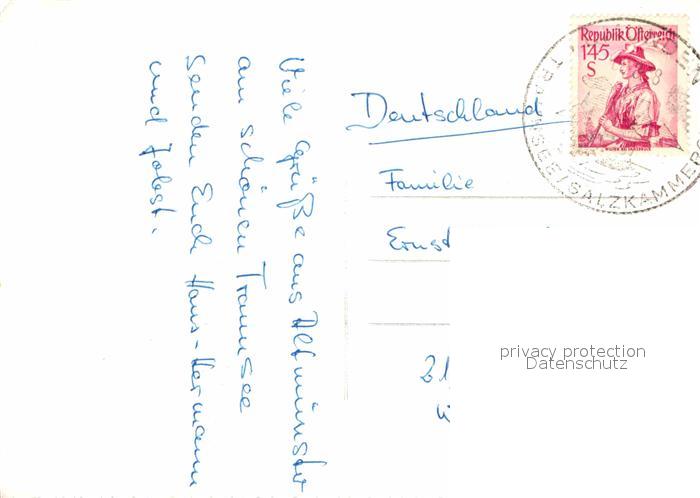 Viele Grüße aus Altmünster
am schönen Traunsee
senden Euch Hans-Hermann
und Jobst.
Republik Österreich
1'45
S
TRAUNSEE/SALZKAMMERG
Deutschland
Familie
Ernst
privacy protection
Datenschutz